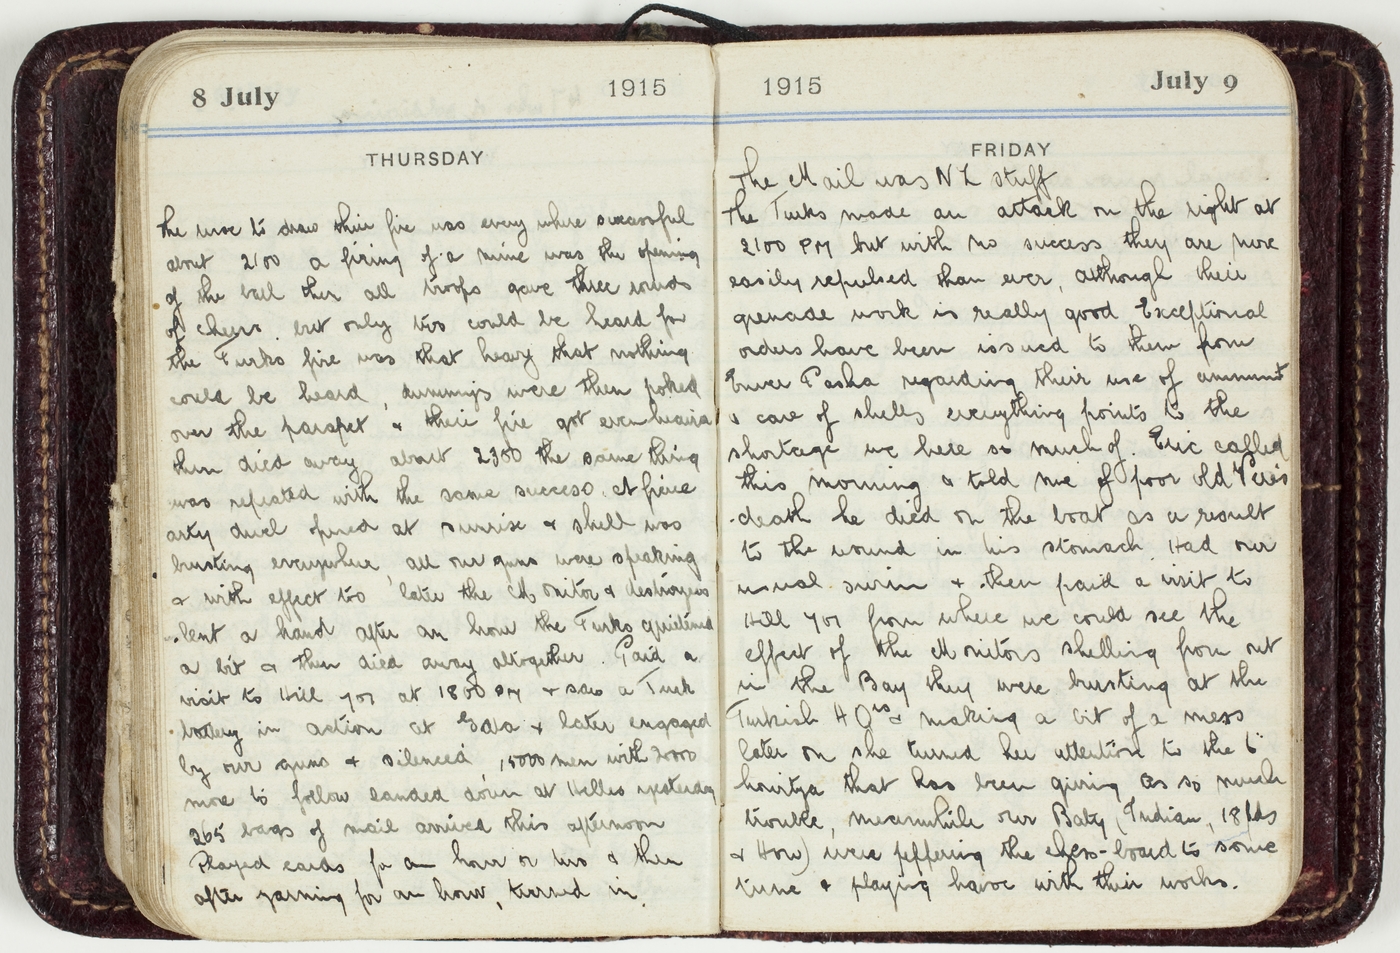 8 July 1915
THURSDAY
the ruse to draw their fire was every where sucessful
about 2100 a firing of a mine was the opening
of the ball then all troops gave three rounds
of cheers but only two could be heard for
the Turks fire was that heavy that nothing
could be heard, dummys were then poked
over the parapet & their fire got even heavier
then died away about 2330 the same thing
was repeated with the same success. A fierce
arty duel opened at sunrise & shell was
bursting everywhere, all our guns were speaking
& with effect too later the Monitor & destroyers
lent a hand after an hour the Turks quietened
a bit & then died away altogether. Paid a
visit to Hill 701 at 1800 PM & saw a Turk
battery in action at Gaba & later engaged
by our guns & silenced, 15000 men with 2000
more to follow landed down at Helles yesterday
265 bags of mail arrived this afternoon
Played cards for an hour or two & then
after yarning for an hour, turned in.
1915 July 9
FRIDAY
The Mail was NZ stuff
The Turks made an attack on the right at
2100 PM but with no success they are more
easily repulsed than ever, although their
grenade work is really good Exceptional
orders have been issued to them from
Enver Pasha regarding their use of ammunit
& care of shells everything points to the
shortage we here so much of. Eric called
this morning & told me of poor old
death he died on the boat as a result
to the wound in his stomach. Had our
usual swim & then paid a visit to
Hill 701 from where we could see the
effect of the Monitors shelling from out
in the Bay they were bursting at the
Turkish H Qrs & making a bit of a mess
later on she turned her attention to the 6"
howitzer that has been giving us so much
trouble, meanwhile our Baty (Indian, 18 pds
& How) were peppering the chess-board to some
tune & playing havoc with their works.